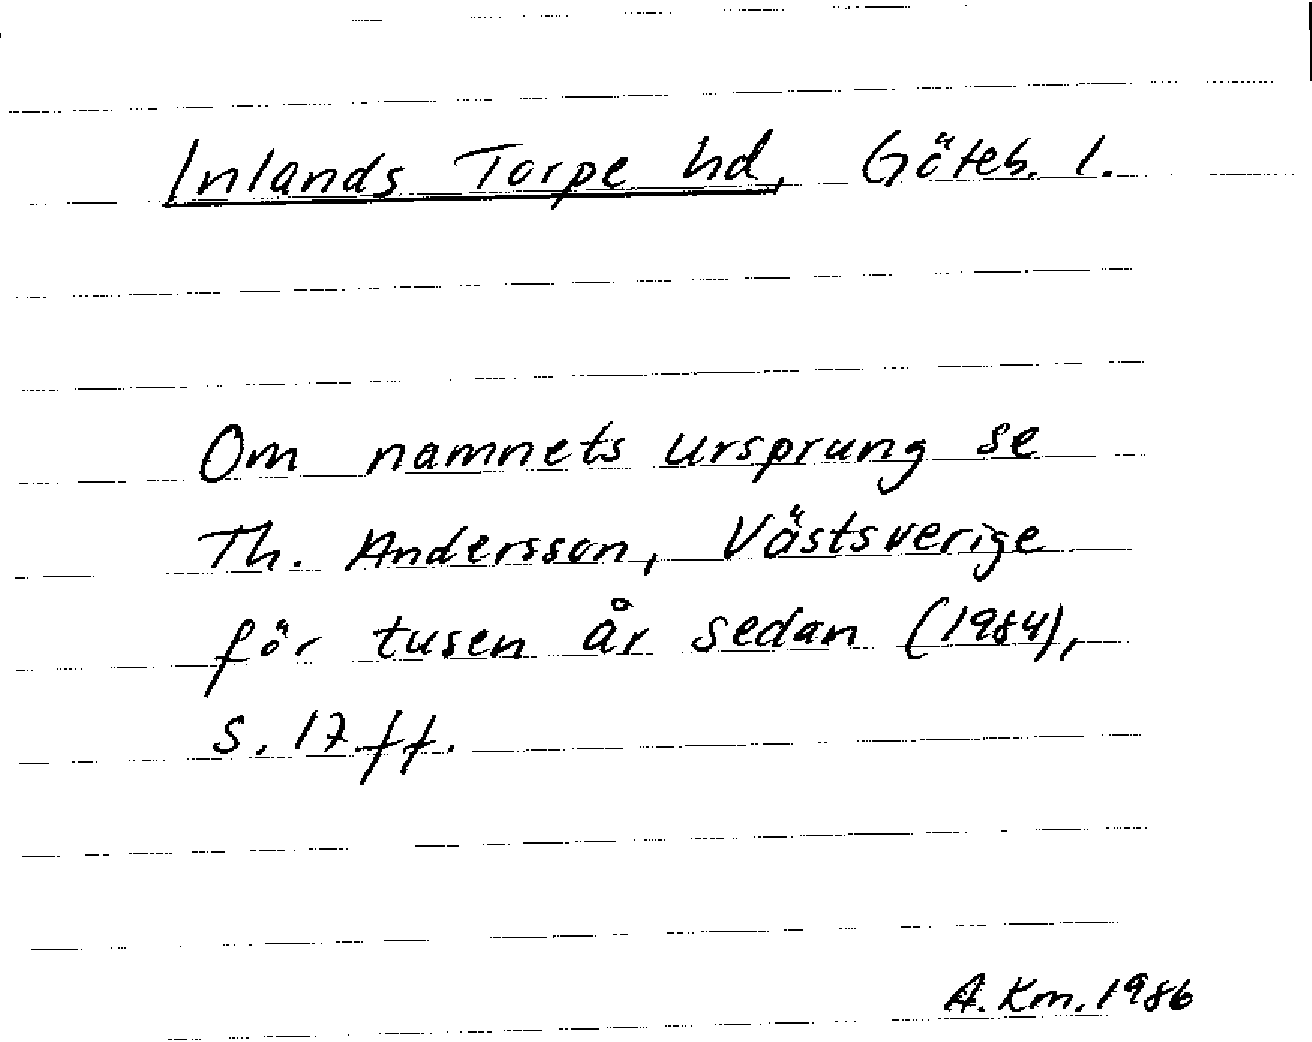 Inlands Torpe hd, Göteb. l.
Om namnets ursprung se
Th. Andersson, Västsverige
för tusen år sedan (1984),
s. 17 ff.
A. Km. 1986